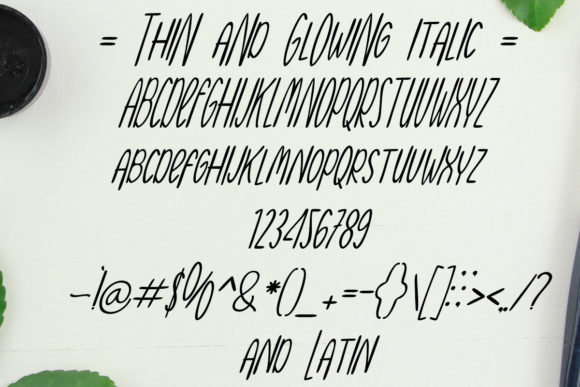 = THIN AND GLOWING ITALIC =
ABCDEFGHIJKLMNOPQRSTUVWXYZ
ABCDEFGHIJKLMNOPQRSTUVWXYZ
123456789
~!@#$%^&*()_+=-{}\[]:;><,./?
AND LATIN